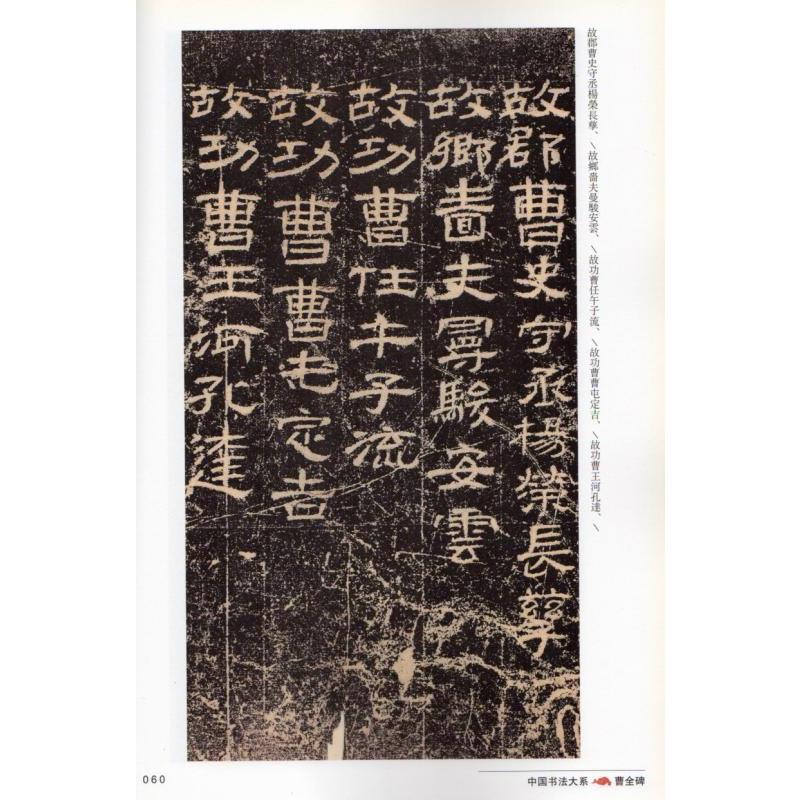 故郡曹史守丞楊榮長孳
故鄉嗇夫曼駿安雲
故功曹任午子流
故功曹曹屯定吉
故功曹王河孔達
故郡曹史守丞楊榮長孳、\故鄉嗇夫曼駿安雲、\故功曹任午子流、\故功曹曹屯定吉、\故功曹王河孔達、\
060
中国书法大系 曹全碑